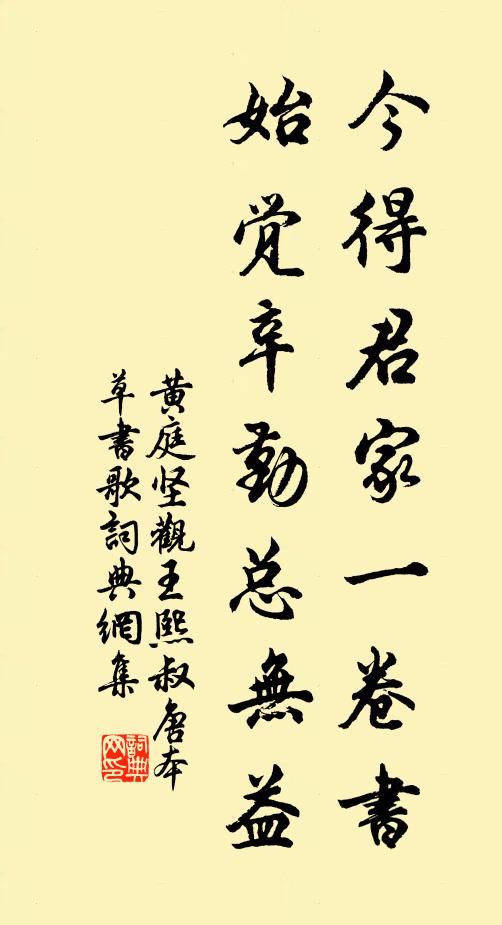 今得君家一卷書
始觉辛勤总無益
黄庭坚觀王熙叔唐本
草書歌詞典網集
詞典网印